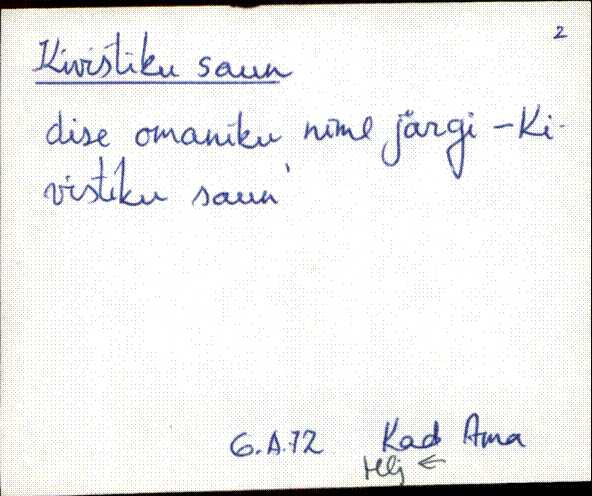 2
Kivistiku saun
dise omaniku nime järgi - Ki-
vistiku saun'
G.A.72 Kad Ama
Hlj ←